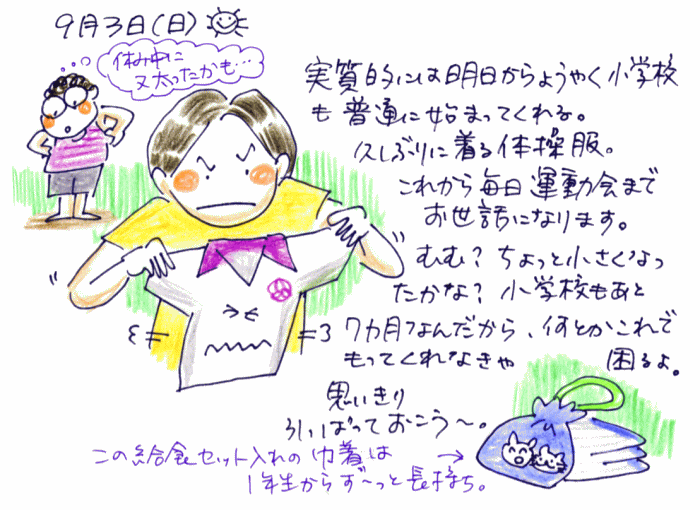 9月3日(日)
休み中に
又太ったかも…
実質的には明日からようやく小学校
も普通に始まってくれる。
久しぶりに着る体操服。
これから毎日運動会まで
お世話になります。
むむ?ちょっと小さくなっ
たかな?小学校もあと
7カ月なんだから、何とかこれで
もってくれなきゃ 困るよ。
思いきり
引っぱっておこう〜。
この給食セット入れの巾着は →
1年生からず〜っと長持ち。